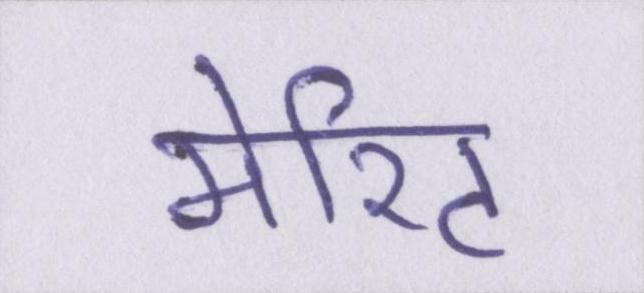 मेरिट